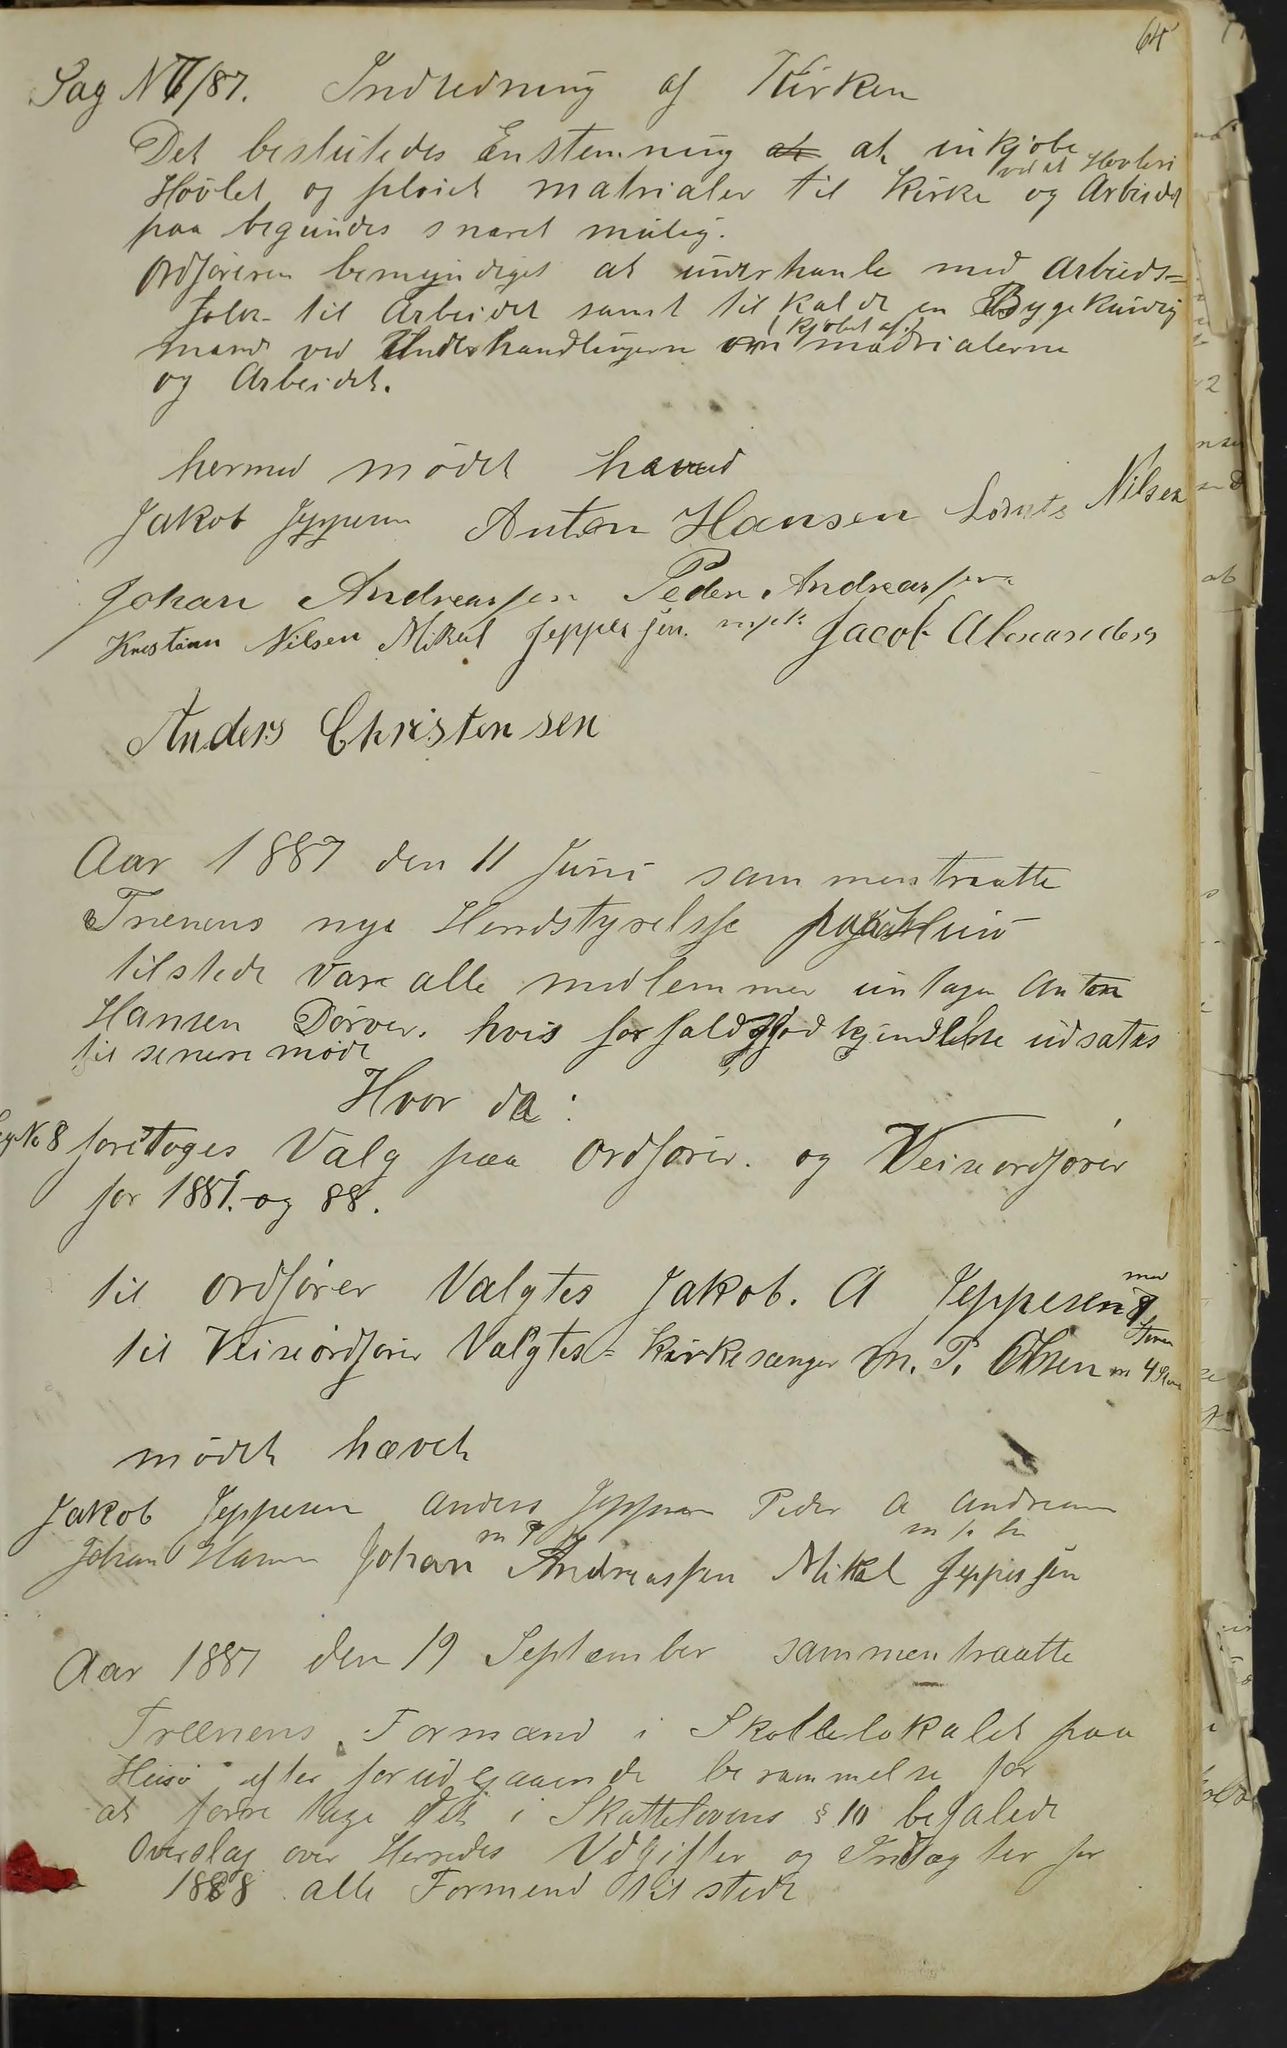 64
Sag N 7/87. Indredning af Kirken
Det beslutedes Enstemning at at inkjöbe
ved et Hövleri
Hövlet og pløiet matrialer til Kirke og Arbeidet
paa begundes snaret mulig.
Ordføreren bemyndiget at underhanle med Arbieds=
folk til Arbeidet samt til kalde en Bygekundig
kjøbet af
mand ved Underhandlingerne om madrialerne
og Arbeidet.
hermed mödet haved
Jakob Jeppesen Anton Hansen Lornts Nilsen
Johan Andreassen Peder Andreassen
Kristian Nilsen Mikal Jeppessen Jacob Alexandersen
Anders Christensen
Aar 1887 den 11 Juni sammentraatte
Trænens nye Herredstyrelsse paa Husö
tilstede vare alle medlemmer untagen Anton
Hansen Dørvær. hvis forfald godkjendelse udsates
til senere møde
Hvor da:
Sag No 8 foretoges Valg paa Ordfører. og Veiseordfører
for 1887. og 88.
med
til Ordfører Valgtes Jakob. A Jeppesen 8
Stemer
til Veiseordfører Valgtes = Kirkesænger M. P. Olsen m 4 Stem
mødet hævet
Jakob Jeppesen Anders Jeppesen Peder A Andreassen
m P P
Johan Hansen Johan Andreassen Mikal Jeppessen
Aar 1887 den 19 September sammentraatte
Trænens Formænd i Skolelokalet paa
Husö efter forudgaaende berammelse for
at forre tage det i Skattelovens § 10 befalede
Overslag over Herredes Udgifter og Indtægter for
1888 alle Formend tilstede